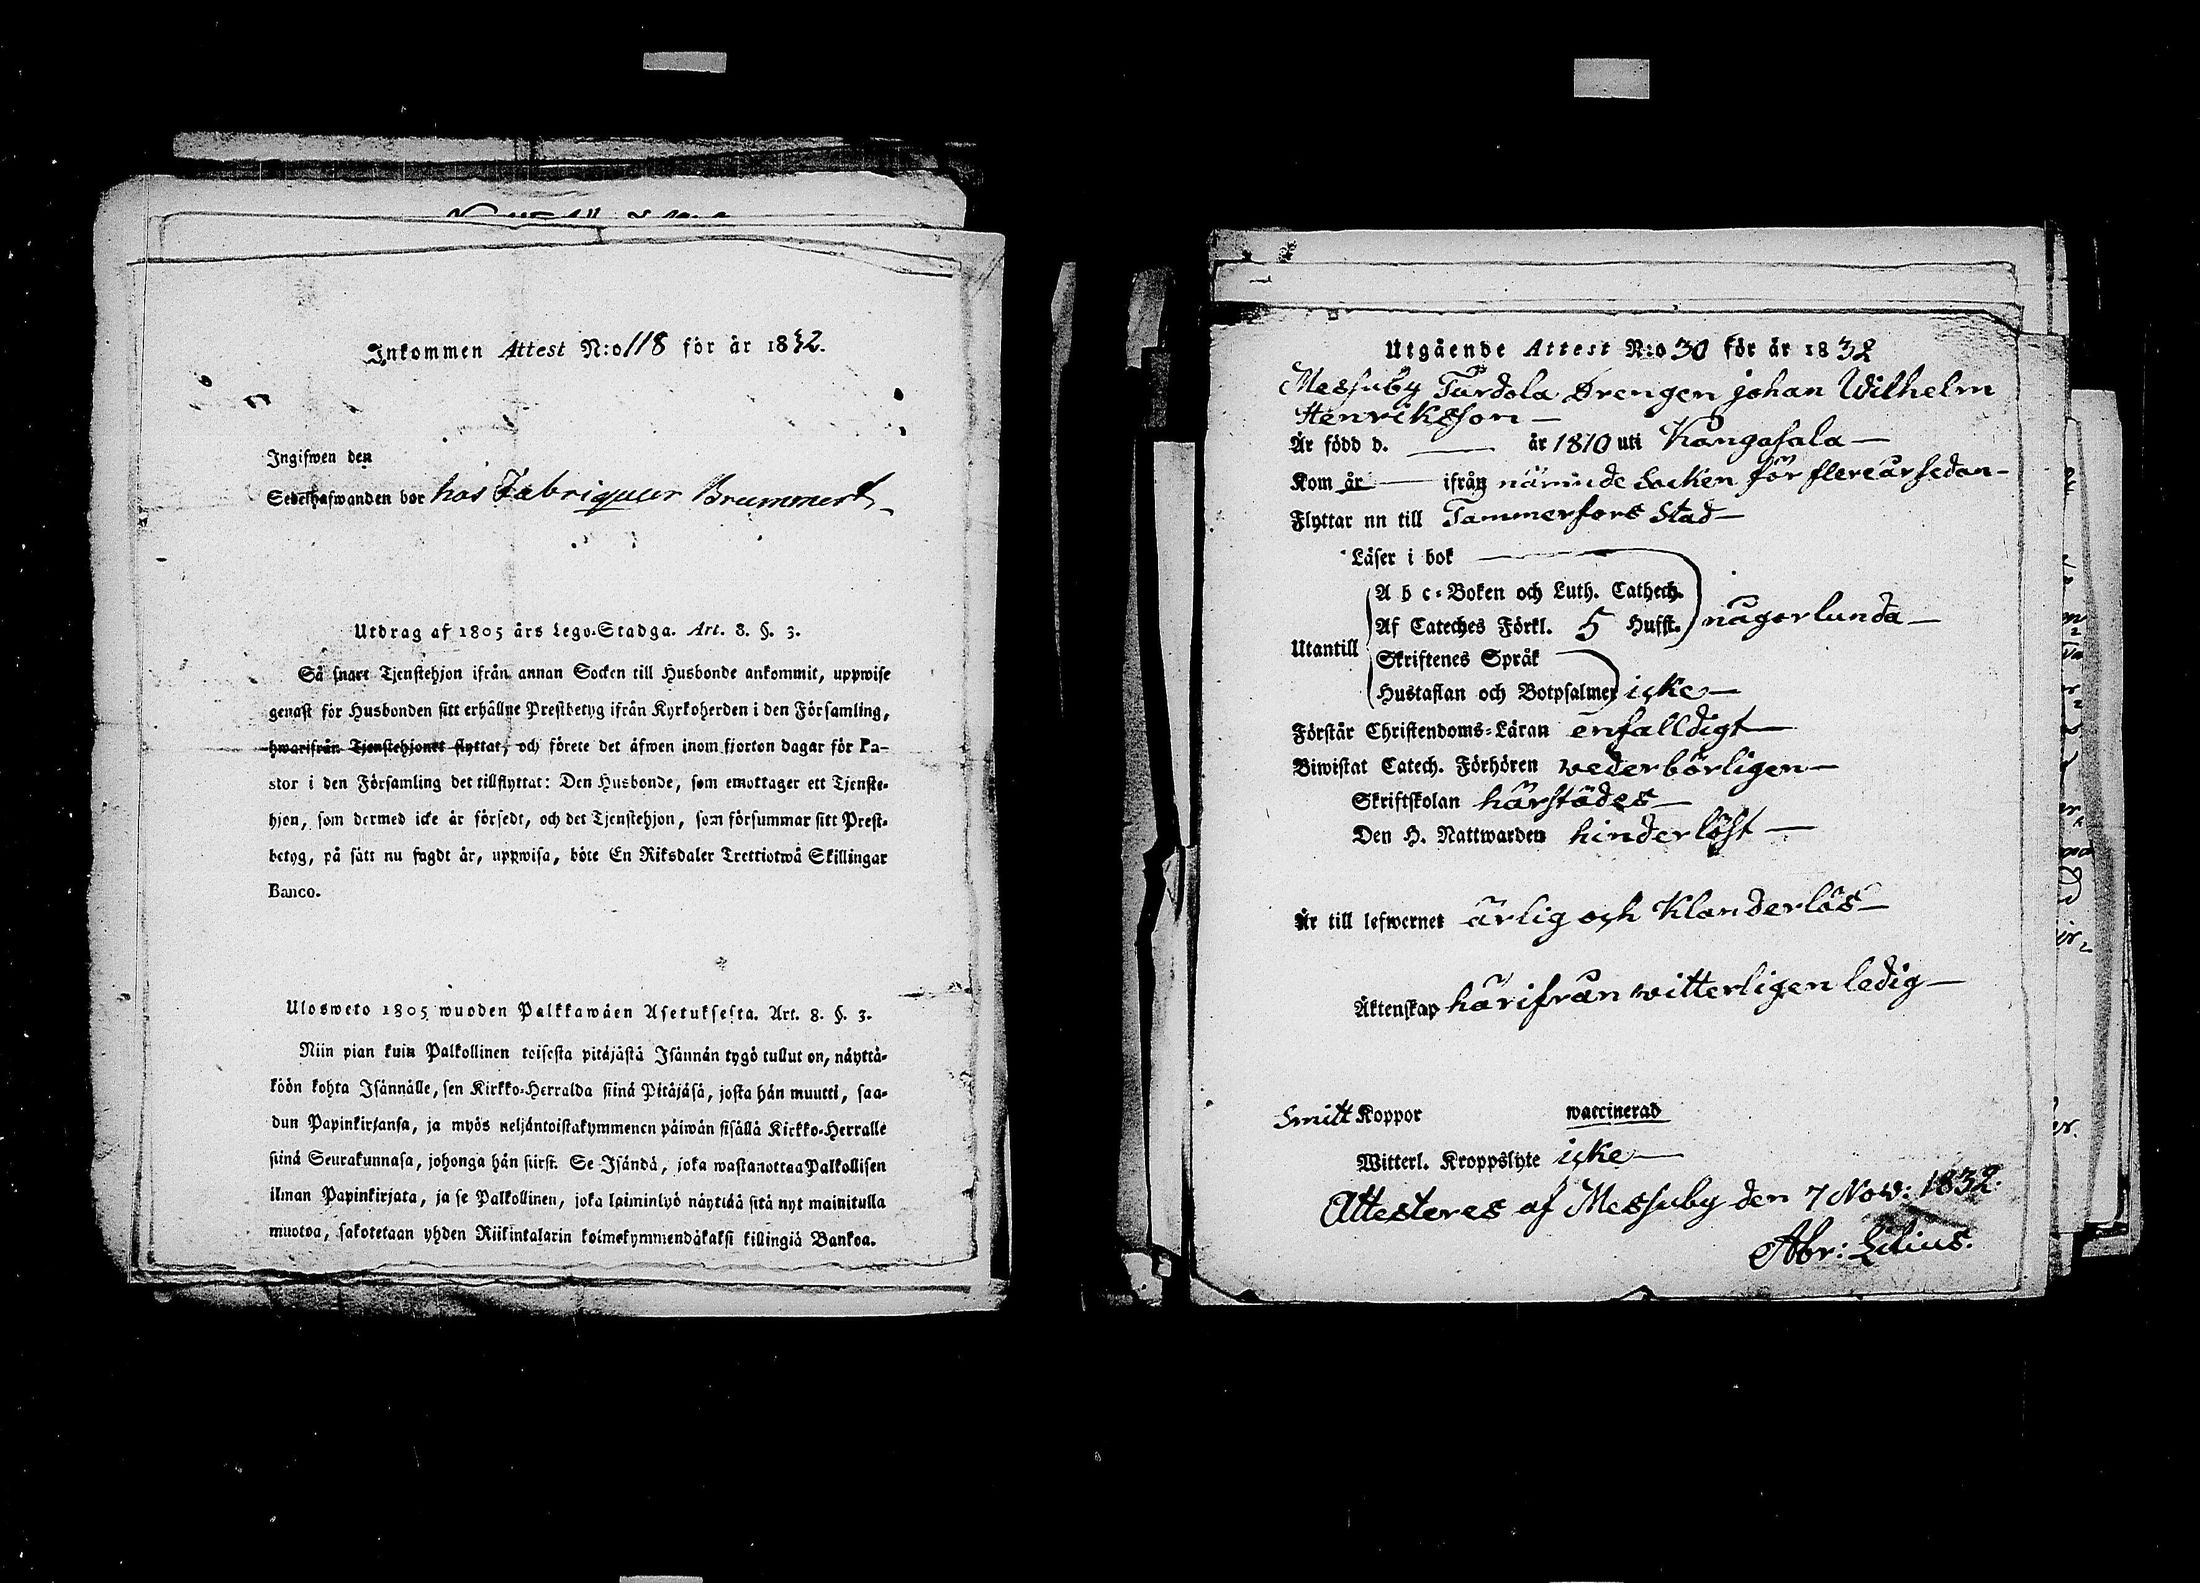 Inkommen Attest N:o 118 för år 1832.
Ingifwen den
Sedelhafwanden bor hos Fabriqueur Brummert
Utdrag af 1805 års Lego-Stadga. Art. 8. §. 3.
Så snart Tjenstehjon ifrån annan Socken till Husbonde ankommit, uppwise
genast för Husbonden sitt erhållne Prestbetyg ifrån Kyrkoherden i den Församling,
hwarifrån Tjenstehjonet flyttat, och förete det äfwen inom fjorton dagar för Pa-
stor i den Församling det tillflyttat: Den Husbonde, som emottager ett Tjenste-
hjon, som dermed icke är försedt, och det Tjenstehjon, som försummar sitt Prest-
betyg, på sätt nu sagdt är, uppwisa, böte En Riksdaler Trettiotwå Skillingar
Banco.
Ulosweto 1805 wuoden Palkkawäen Asetuksesta. Art. 8. §. 3.
Niin pian kuin Palkollinen toisesta pitäjästä Isännän tygö tullut on, näyttä-
köön kohta Isännälle, sen Kirkko-Herralda siinä Pitäjäsä, josta hän muutti, saa-
dun Papinkirjansa, ja myös neljäntoistakymmenen päiwän sisällä Kirkko-Herralle
siinä Seurakunnasa, johonga hän siirsi. Se Isändä, joka wastanottaa Palkollisen
ilman Papinkirjata, ja se Palkollinen, joka laiminlyö näytidä sitä nyt mainitulla
muotoa, sakotetaan yhden Riikintalarin kolmekymmendäkaksi killingiä Bankoa.
Utgående Attest N:o 30 för år 1832
Messuby Turdola Drengen Johan Wilhelm
Henriksson —
Är född d. — år 1810 uti Kangasala —
Kom år — ifrån nämnde Socken för flere år sedan —
Flyttar nu till Tammerfors Stad —
Läser i bok
A b c-Boken och Luth. Cathech.
Af Cateches Förkl. 5 Hufst. någorlunda —
Utantill
Skriftenes Språk
Hustaflan och Botpsalmer icke —
Förstår Christendoms-Läran enfalldigt —
Biwistat Catech. Förhören wederbörligen —
Skriftskolan härstädes —
Den H. Nattwarden hinderlöst —
Är till lefwernet ärlig och klanderlös —
Äktenskap härifrån witterligen ledig —
Smitt Koppor waccinerad
Witterl. Kroppslyte icke —
Attesteras af Messuby den 7 Nov: 1832.
Abr: Lilius.